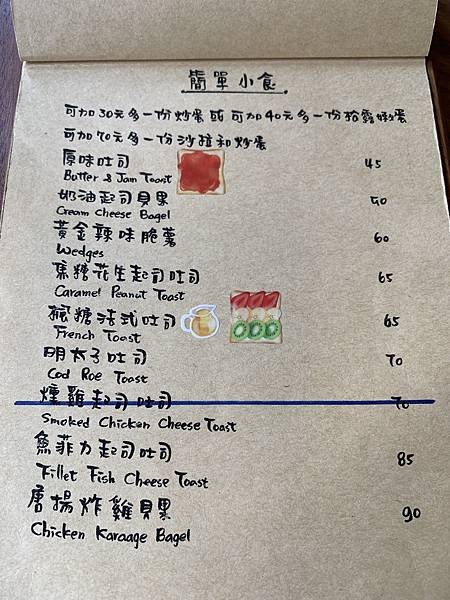 簡單小食
可加30元多一份炒蛋或可加40元多一份拾露蝦蛋
可加70元多一份沙拉和炒蛋
原味吐司 45
Butter & Jam Toast
奶油起司貝果
Cream Cheese Bagel
黃金辣味脆薯 60
Wedges
焦糖花生起司吐司 65
Caramel Peanut Toast
楓糖法式吐司 65
French Toast
明太子吐司 70
Cod Roe Toast
燻雞起司吐司 70
Smoked Chicken Cheese Toast
魚菲力起司吐司 85
Fillet Fish Cheese Toast
唐揚炸雞貝果 90
Chicken Karaage Bagel